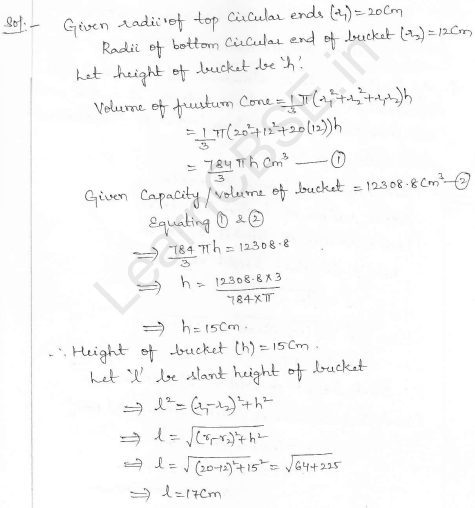 Sol:- Given radii of top circular ends (r₁) = 20cm
Radii of bottom circular end of bucket (r₂) = 12cm
Let height of bucket be 'h'
Volume of frustum cone = 1/3 π(r₁²+r₂²+r₁r₂)h
= 1/3 π(20²+12²+20(12))h
= 784/3 πh cm³ —— ①
Given capacity/volume of bucket = 12308.8cm³ —②
Equating ① & ②
⇒ 784/3 πh = 12308.8
⇒ h = 12308.8×3 / 784×π
⇒ h = 15cm.
∴ Height of bucket (h) = 15cm.
Let 'l' be slant height of bucket
⇒ l² = (r₁-r₂)²+h²
⇒ l = √(r₁-r₂)²+h²
⇒ l = √(20-12)²+15² = √64+225
⇒ l = 17cm
LearnCBSE.in